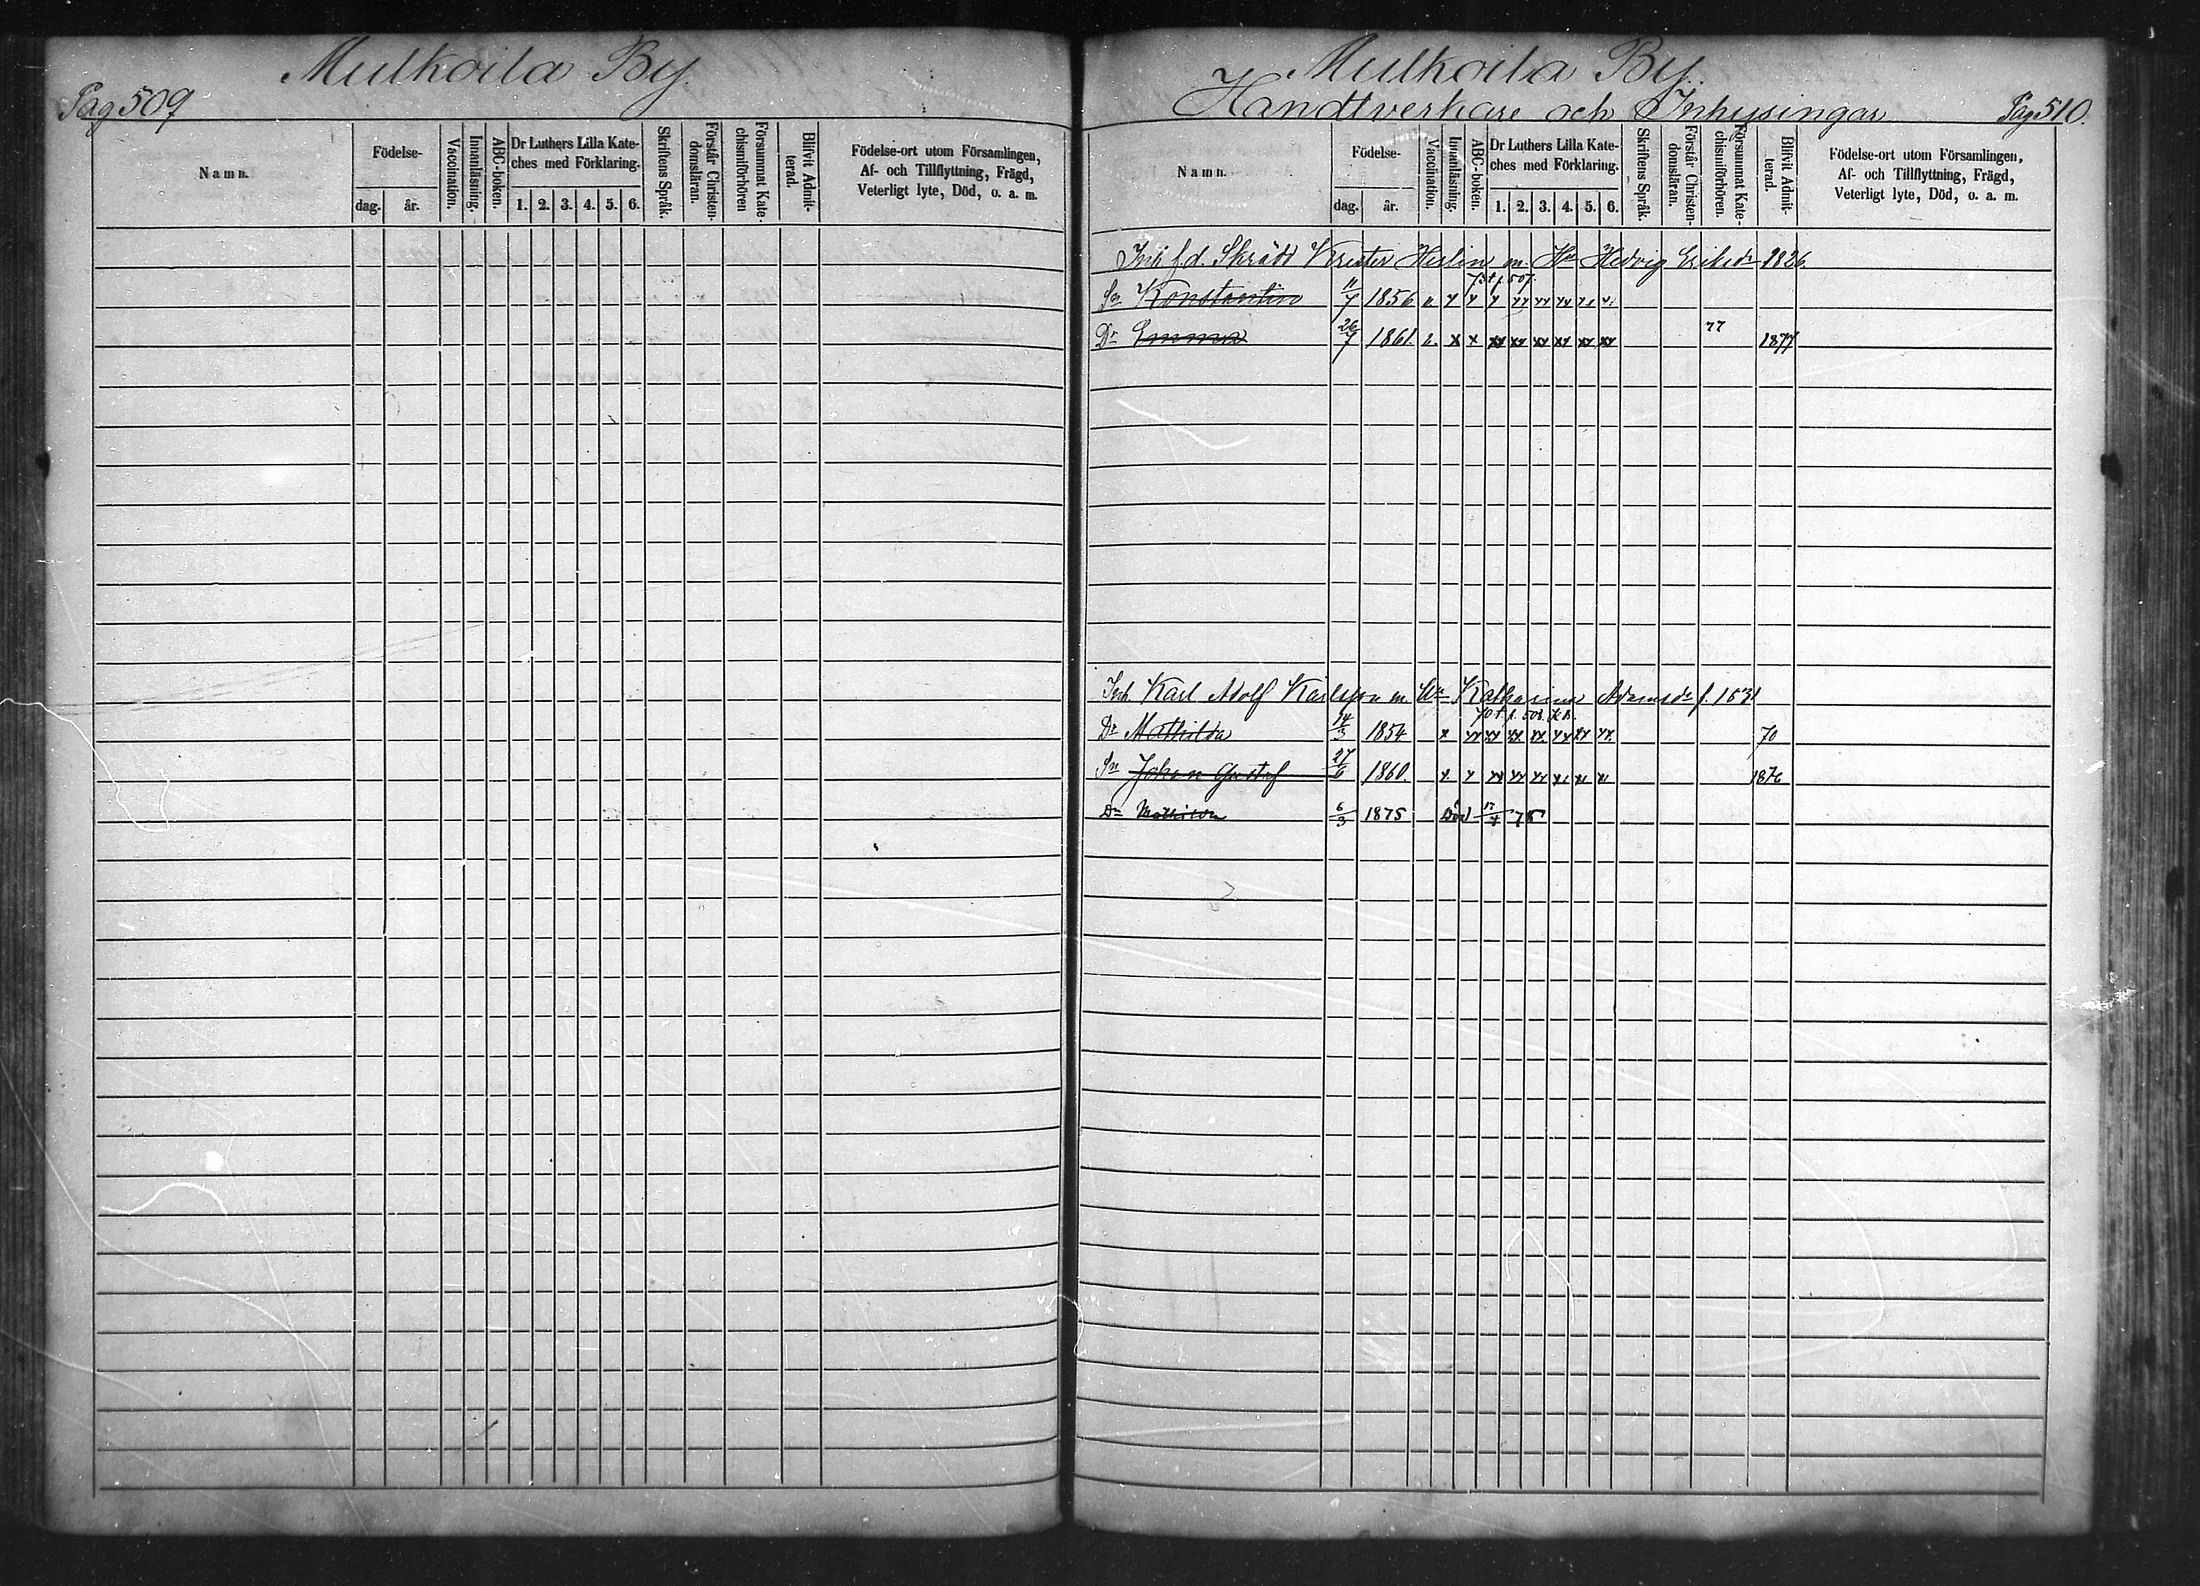 Mulkoila By.
Pag 509
Namn. Födelse- dag. år. Vaccination. Innanläsning. ABC-boken. Dr Luthers Lilla Kate-ches med Förklaring. 1. 2. 3. 4. 5. 6. Skriftens Språk. Förstår Christen-domsläran. Försummat Kate-chismiförhören Blifvit Admit-terad. Födelse-ort utom Församlingen, Af- och Tillflyttning, Frägd, Veterligt lyte, Död, o. a. m.
Mulkoila By.
Handtverkare och Inhysingar
Pag 510.
Namn. Födelse- dag. år. Vaccination. Innanläsning. ABC-boken. Dr Luthers Lilla Kate-ches med Förklaring. 1. 2. 3. 4. 5. 6. Skriftens Språk. Förstår Christen-domsläran. Försummat Kate-chismiförhören. Blifvit Admit-terad. Födelse-ort utom Församlingen, Af- och Tillflyttning, Frägd, Veterligt lyte, Död, o. a. m.
Inh f.d. Skrädd Krister Herlin m. Hu Hedvig Eriksdr 1826.
p. 507.
Sn Konstantin 11/7 1856
Dr Emma 26/7 1861. 77 1877
Inh. Karl Adolf Karlsson m. Hu Katharina Adamsdr f. 1831
70 t. p. 508.
Dr Mathilda 14/3 1854 70
Sn Johan Gustaf 27/6 1860. 1876
Dr Mathilda 6/3 1875 Död 17/4 75